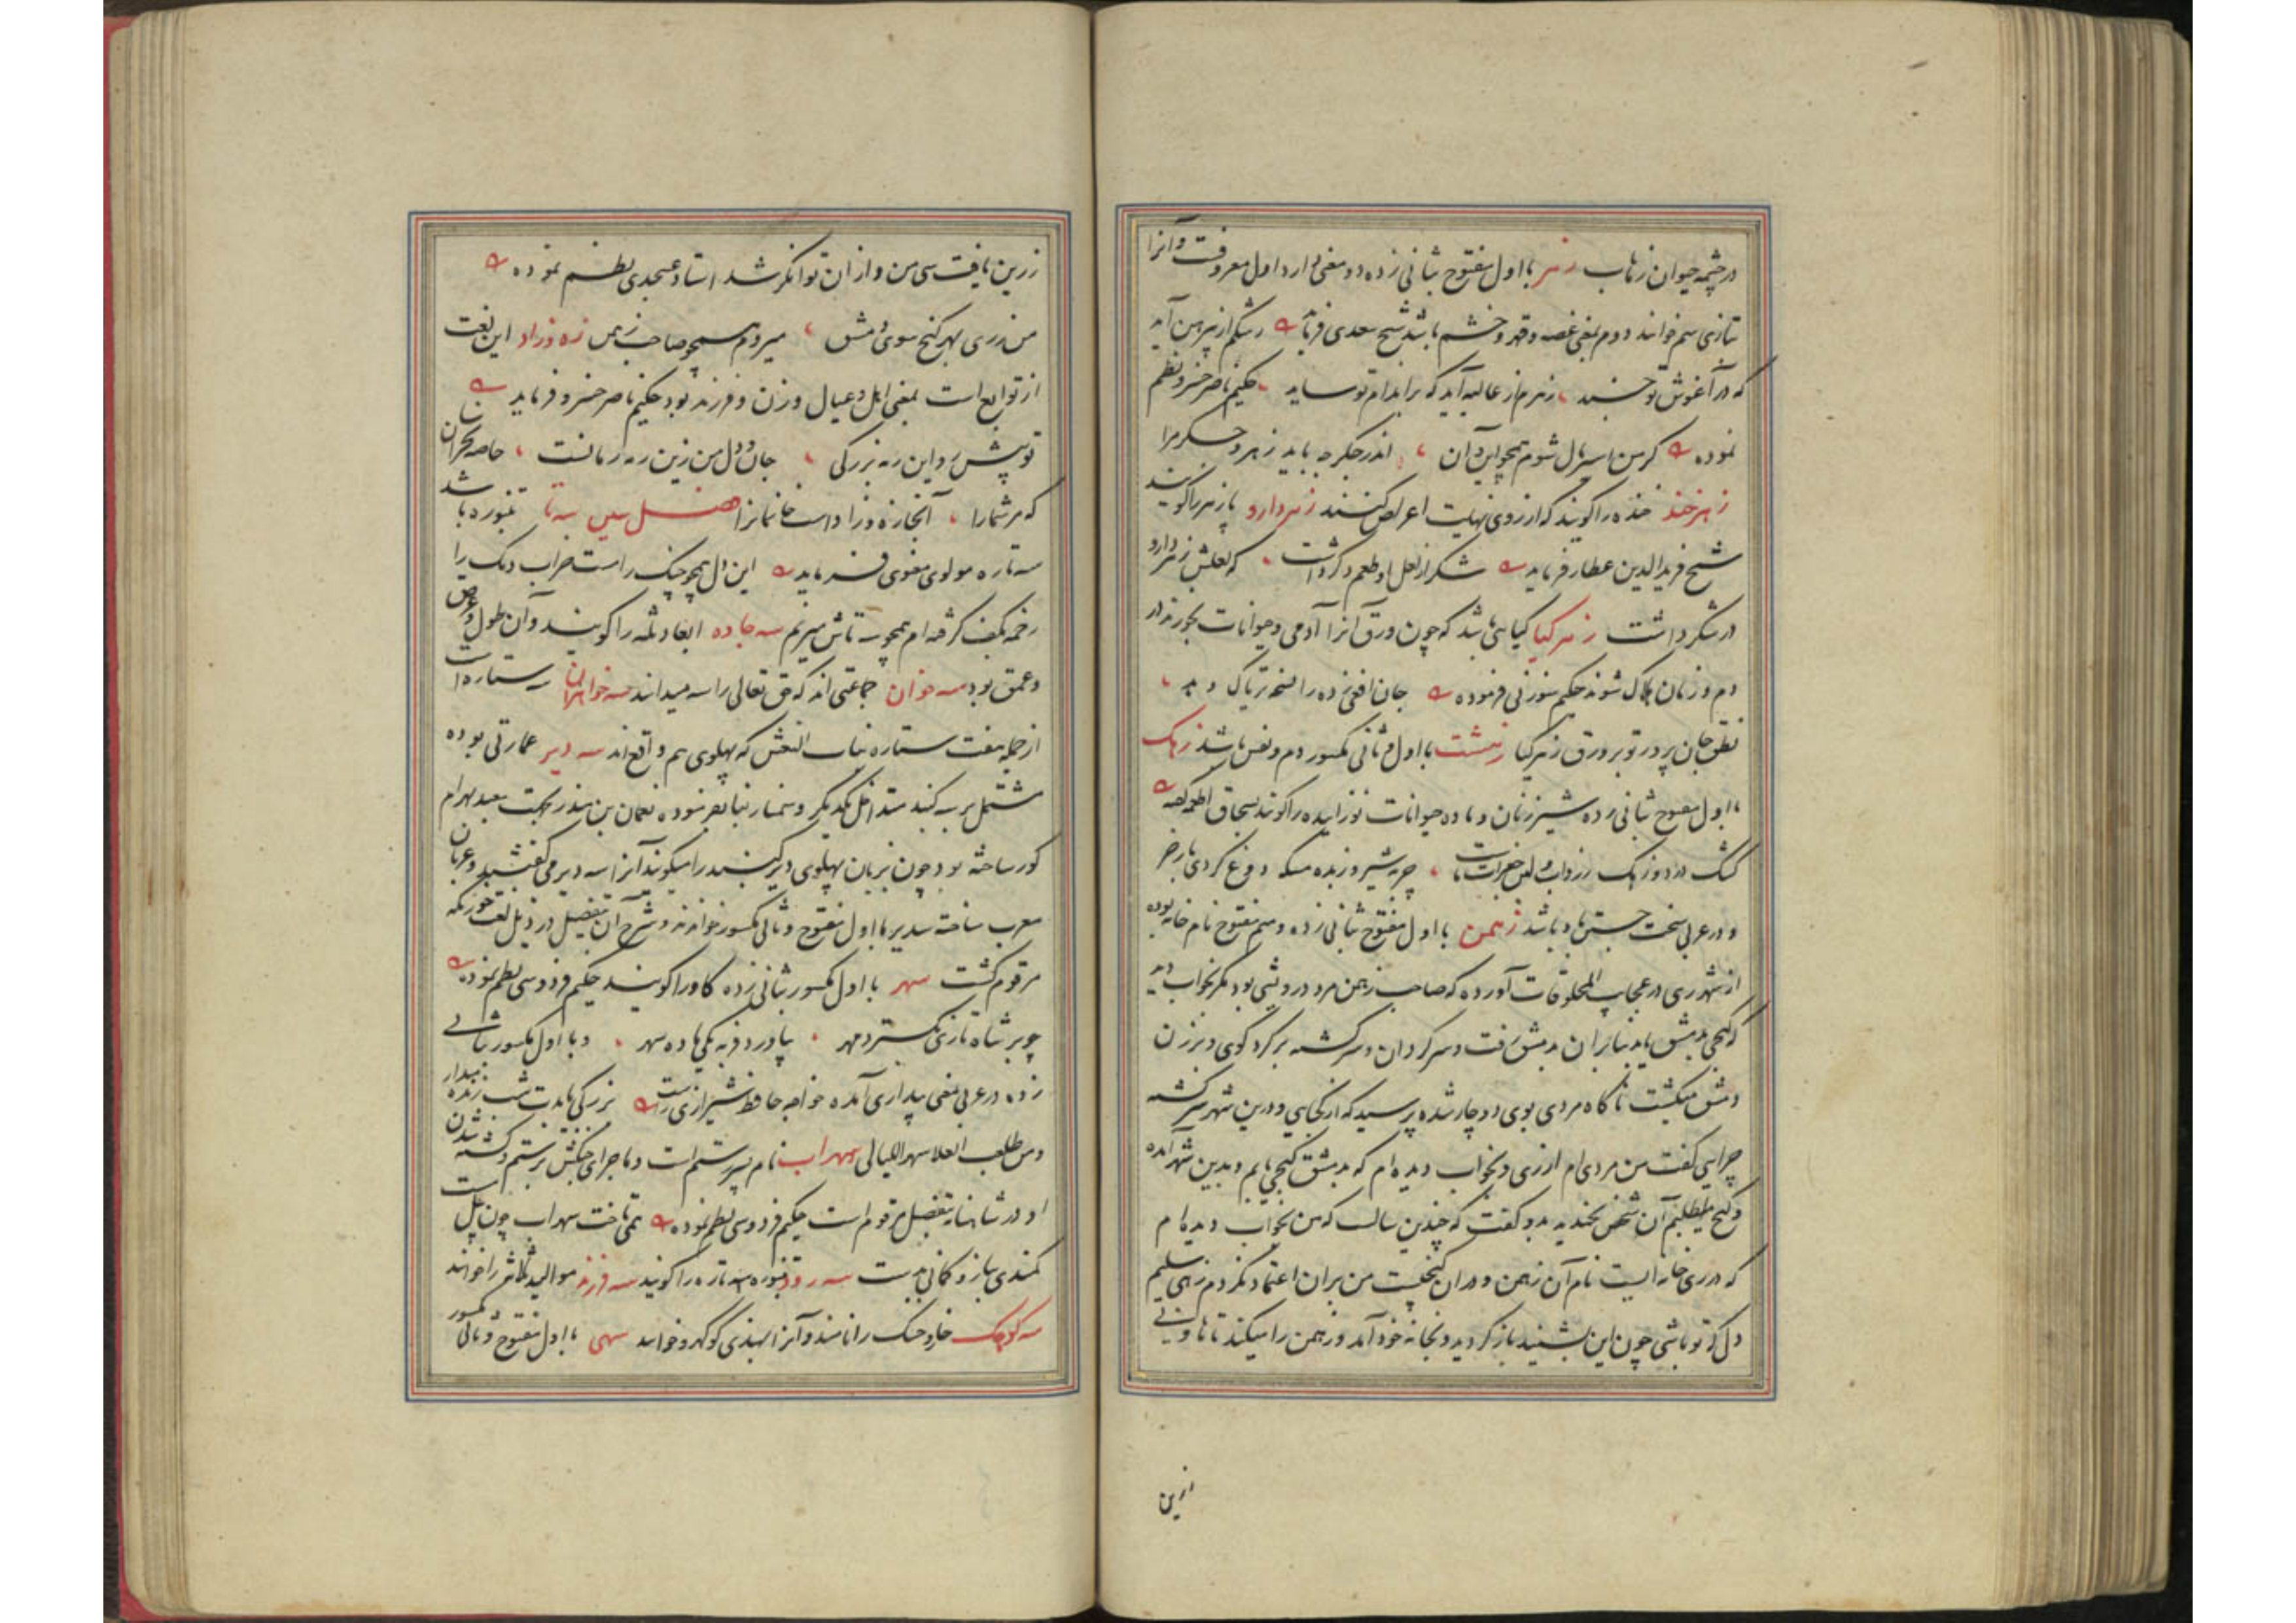 در چشمه حیوان زهاب زهر با اول مفتوح بثانی زده دو معنی دارد اول معروفست و آنرا
بتازی سم خوانند دوم بمعنی غصه و قهر و خشم باشد شیخ سعدی فرماید رشکم از پیرهن آید
که در آغوش تو خسبد زهرم از غالیه آید که بر اندام تو ساید حکیم ناصر خسرو نظم
نموده اندر جگر چه باید زهر و حسک مرا
زهرخند خنده را گویند که از روی نهایت اعراض کنند زهردارو پازهر را گویند
شیخ فریدالدین عطار فرماید شکر از لعل او طعم دگر داشت که لعلش زهردارو
در شکر داشت زهرگیا گیاهی باشد که چون ورق آنرا آدمی و حیوانات بخورند در
دم و زمان هلاک شوند حکیم سوزنی فرموده جان افعی زده را نسخه تریاک دهد
نطق جان پرور تو بر ورق زهرگیا زهشت با اول و ثانی مکسور دم و نفس باشد زهک
با اول مفتوح بثانی زده شیر زنان و ماده حیوانات نوزاییده را گویند بسحاق اطعمه گفته
کشک در دوزهک
و در عربی سخت جستن باد باشد زهمن با اول مفتوح بثانی زده و میم مفتوح نام خانه بوده
از شهر ری در عجایب المخلوقات آورده که صاحب زهمن مرد درویشی بود مگر بخواب دید
که گنجی بدمشق یابد بنابران بدمشق رفت و سرگردان و سرگشته بر گرد کوی و برزن
دمشق میگشت ناگاه مردی بوی دوچار شده پرسید که از کجایی و درین شهر سرگشته
چرایی گفت من مردی ام از ری و بخواب دیده ام که بدمشق گنجی یابم و بدین شهر آمده
و گنج میطلبم آن شخص بخندید و گفت که چندین سالست که من بخواب دیده ام
که در ری خانه ایست نام آن زهمن و در آن گنجیست من بر آن اعتماد نکردم زهی سلیم
دل که تو باشی چون این بشنید باز گردید و بخانه خود آمد و زهمن را میکند تا هاونی
زرین
زرین یافت سی من و از آن توانگر شد استاد عسجدی نظم نموده
من ز ری بهر گنج سوی دمشق میروم همچو صاحب زهمن زه و زاد این لغت
از توابع است بمعنی اهل و عیال و زن و فرزند بود حکیم ناصر خسرو فرماید
تو پیش رو این رمه بزرگی جان و دل من زین رمه رمانست
که مر شما را آنجا زه و زاد است خانمانرا فصل سین سه تا تنبوره باشد
سه تاره مولوی معنوی فرماید این دل همچو چنگ راست خراب دنگ را
زخمه بکف گرفته ام همچو سه تاش میزنم سه جاده ابعاد ثلثه را گویند و آن طول و عرض
و عمق بود سه خوان جماعتی اند که حق تعالی را سه میدانند سه خواهران سه ستاره است
از جمله هفت ستاره بنات النعش که پهلوی هم واقع اند سه دیر عمارتی بوده
مشتمل بر سه گنبد متداخل یکدیگر و سنمار بنا بفرموده نعمان بن منذر بجهت تعبد بهرام
گور ساخته بود چون بزبان پهلوی دیر گنبد را میگویند آنرا سه دیر می گفتند و عربان
معرب ساخته سدیر با اول مفتوح و ثانی مکسور خواندند و شرح آن بتفصیل در ذیل لغت خورنگه
مرقوم گشت سهر با اول مکسور بثانی زده گاو را گویند حکیم فردوسی نظم نموده
چو بر شاه تازی بگسترد مهر بیاورد فربه یکی ماده سهر و با اول مکسور بثانی
زده در عربی بمعنی بیداری آمده خواجه حافظ شیرازی راست بزرگی بایدت شب زنده میدار
و من طلب العلا سهر اللیالی سهراب نام پسر رستم است و ماجرای جنگش برستم و کشته شدن
او در شاهنامه بتفصیل مرقوم است حکیم فردوسی نظم نموده همی تاخت سهراب چون پیل مست
کمندی ببازو کمانی بدست سه رود تنبوره سه تاره را گویند سه فرزند موالید ثلاثه را خوانند
سه کوهک خار و خسک را نامند و آنرا بهندی گوکهرو خوانند سهی با اول مفتوح و ثانی مکسور